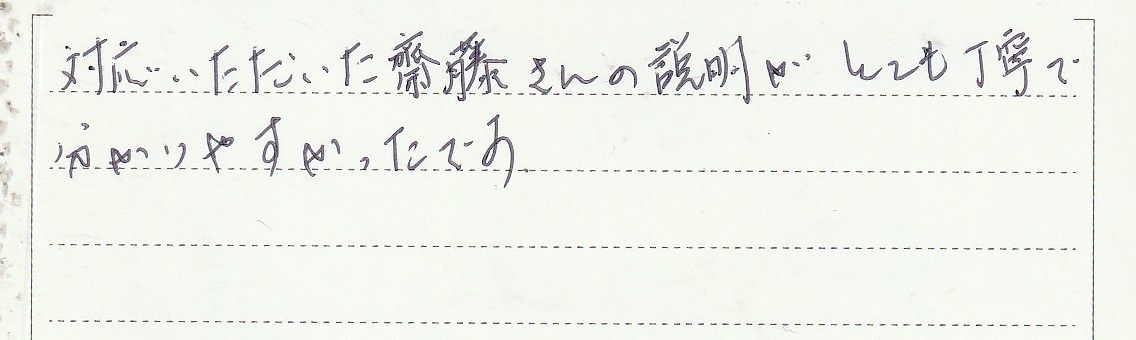 対応いただいた齋藤さんの説明がとても丁寧で
分かりやすかったです